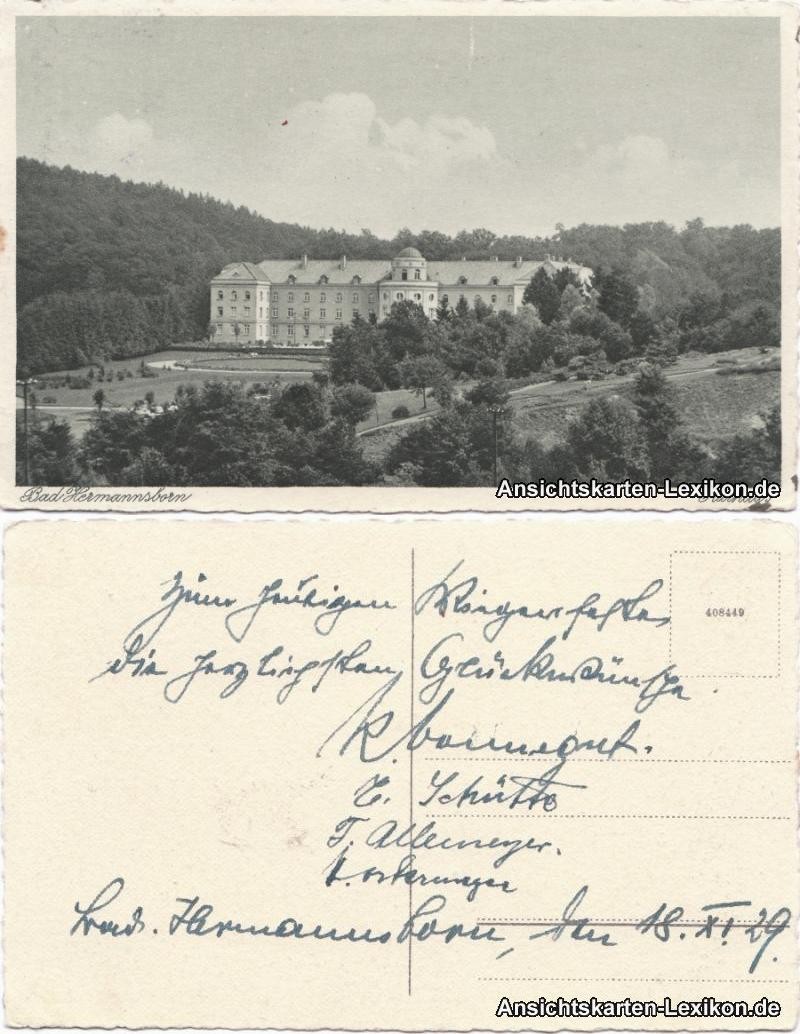 Bad Hermannsborn
Ansichtskarten-Lexikon.de
408449
Zum heutigen Wiegenfeste
die herzlichsten Glückwünsche
K. Vonnegut.
E. Schütte
T. Allemeyer.
Bad. Hermannsborn, den 18. XI. 29.
Ansichtskarten-Lexikon.de